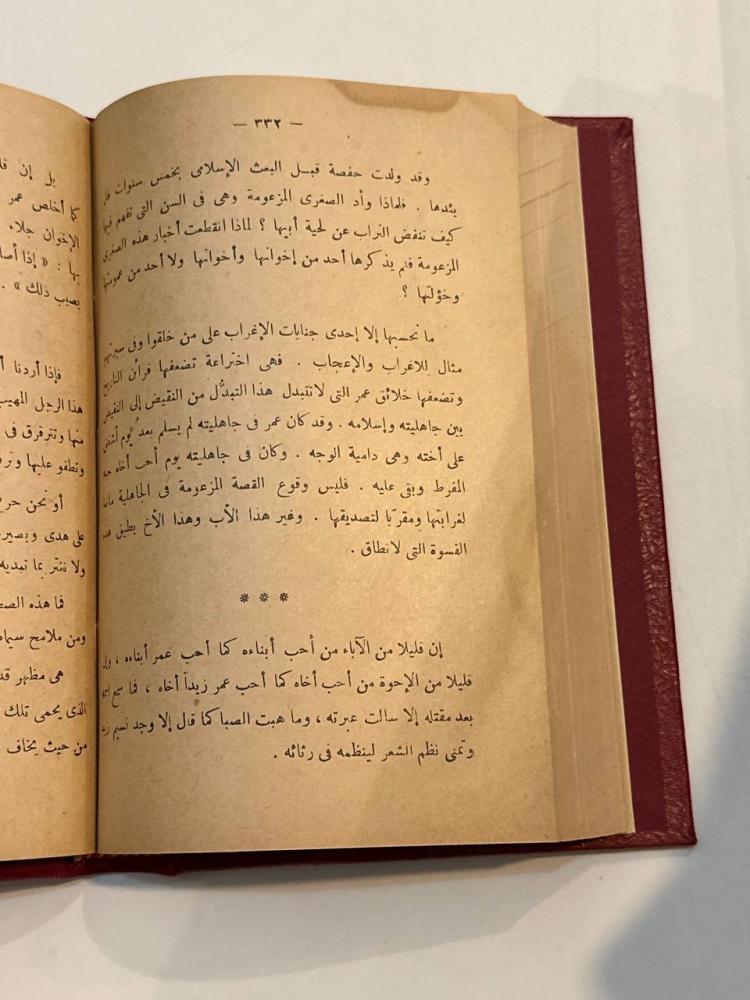 — ٣٣٢ —
وقد ولدت حفصة قبل البعث الإسلامى بخمس سنوات فلم
يئدها . فلماذا وأد الصغرى المزعومة وهى فى السن التى تفهم فيها
كيف تنفض التراب عن لحية أبيها ؟ لماذا انقطعت أخبار هذه الصغرى
المزعومة فلم يذكرها أحد من إخوانها وأخواتها ولا أحد من عمومتها
وخؤلتها ؟
ما نحسبها إلا إحدى جنايات الإغراب على من خلقوا وفى سيرتهم
مثال للاغراب والإعجاب . فهى اختراعة تضعفها قرائن التاريخ
وتضعفها خلائق عمر التى لا تتبدل هذا التبدُّل من النقيض إلى النقيض
بين جاهليته وإسلامه . وقد كان عمر فى جاهليته لم يسلم بعد يوم أشفق
على أخته وهى دامية الوجه . وكان فى جاهليته يوم أحب أخاه
المفرط وبقى عليه . فليس وقوع القصة المزعومة فى الجاهلية مانعا
لغرابتها ومقربا لتصديقها . وغير هذا الأب وهذا الأخ يطيق هذه
القسوة التى لا تطاق .
* * *
إن قليلا من الآباء من أحب أبناءه كما أحب عمر أبناءه ، وإن
قليلا من الإخوة من أحب أخاه كما أحب عمر زيداً أخاه ، فما سمع اسمه
بعد مقتله إلا سالت عبرته ، وما هبت الصبا كما قال إلا وجد نسيم
وتمنى نظم الشعر لينظمه فى رثائه .
بل إن
كما أخلص عمر
الإخوان جلاء
بها : « إذا
يصيب ذلك » .
فإذا أردنا
هذا الرجل المهيب
منها وتترقرق فى
وتطفو عليها
أو نحن
على هدى وبصيرة
ولا نغتر بما تبديه
فما هذه
ومن ملامح
هى مظهر
الذى يحمى تلك
من حيث يخاف